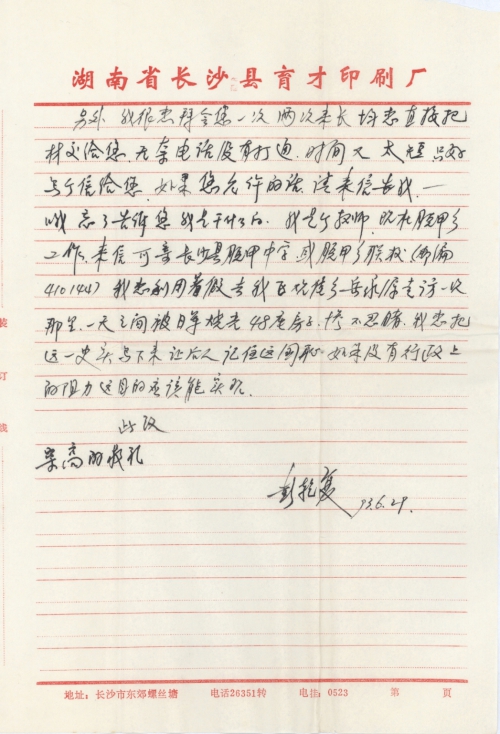 湖南省长沙县育才印刷厂
另外，我很想拜会您一次，两次来长均想直接把
材交给您，无奈电话没有打通，时间又太短，只好
写个信给您，如果您允许的话，请来信告我，一
哦，忘了告诉您我是干什么的，我是个教师，现在脱甲乡
工作，来信可寄长沙县脱甲中学或脱甲乡联校（邮编
410144）我想利用暑假去我
那里一天之间被日军烧去48座房子，惨不忍睹，我想把
这一史实写下来，让后人记住这国耻，如果没有行政上
的阻力，这目的应该能实现。
此致
崇高的敬礼
93.6.29.
装
订
线
地址：长沙市东郊螺丝塘 电话26351转 电挂：0523 第 页